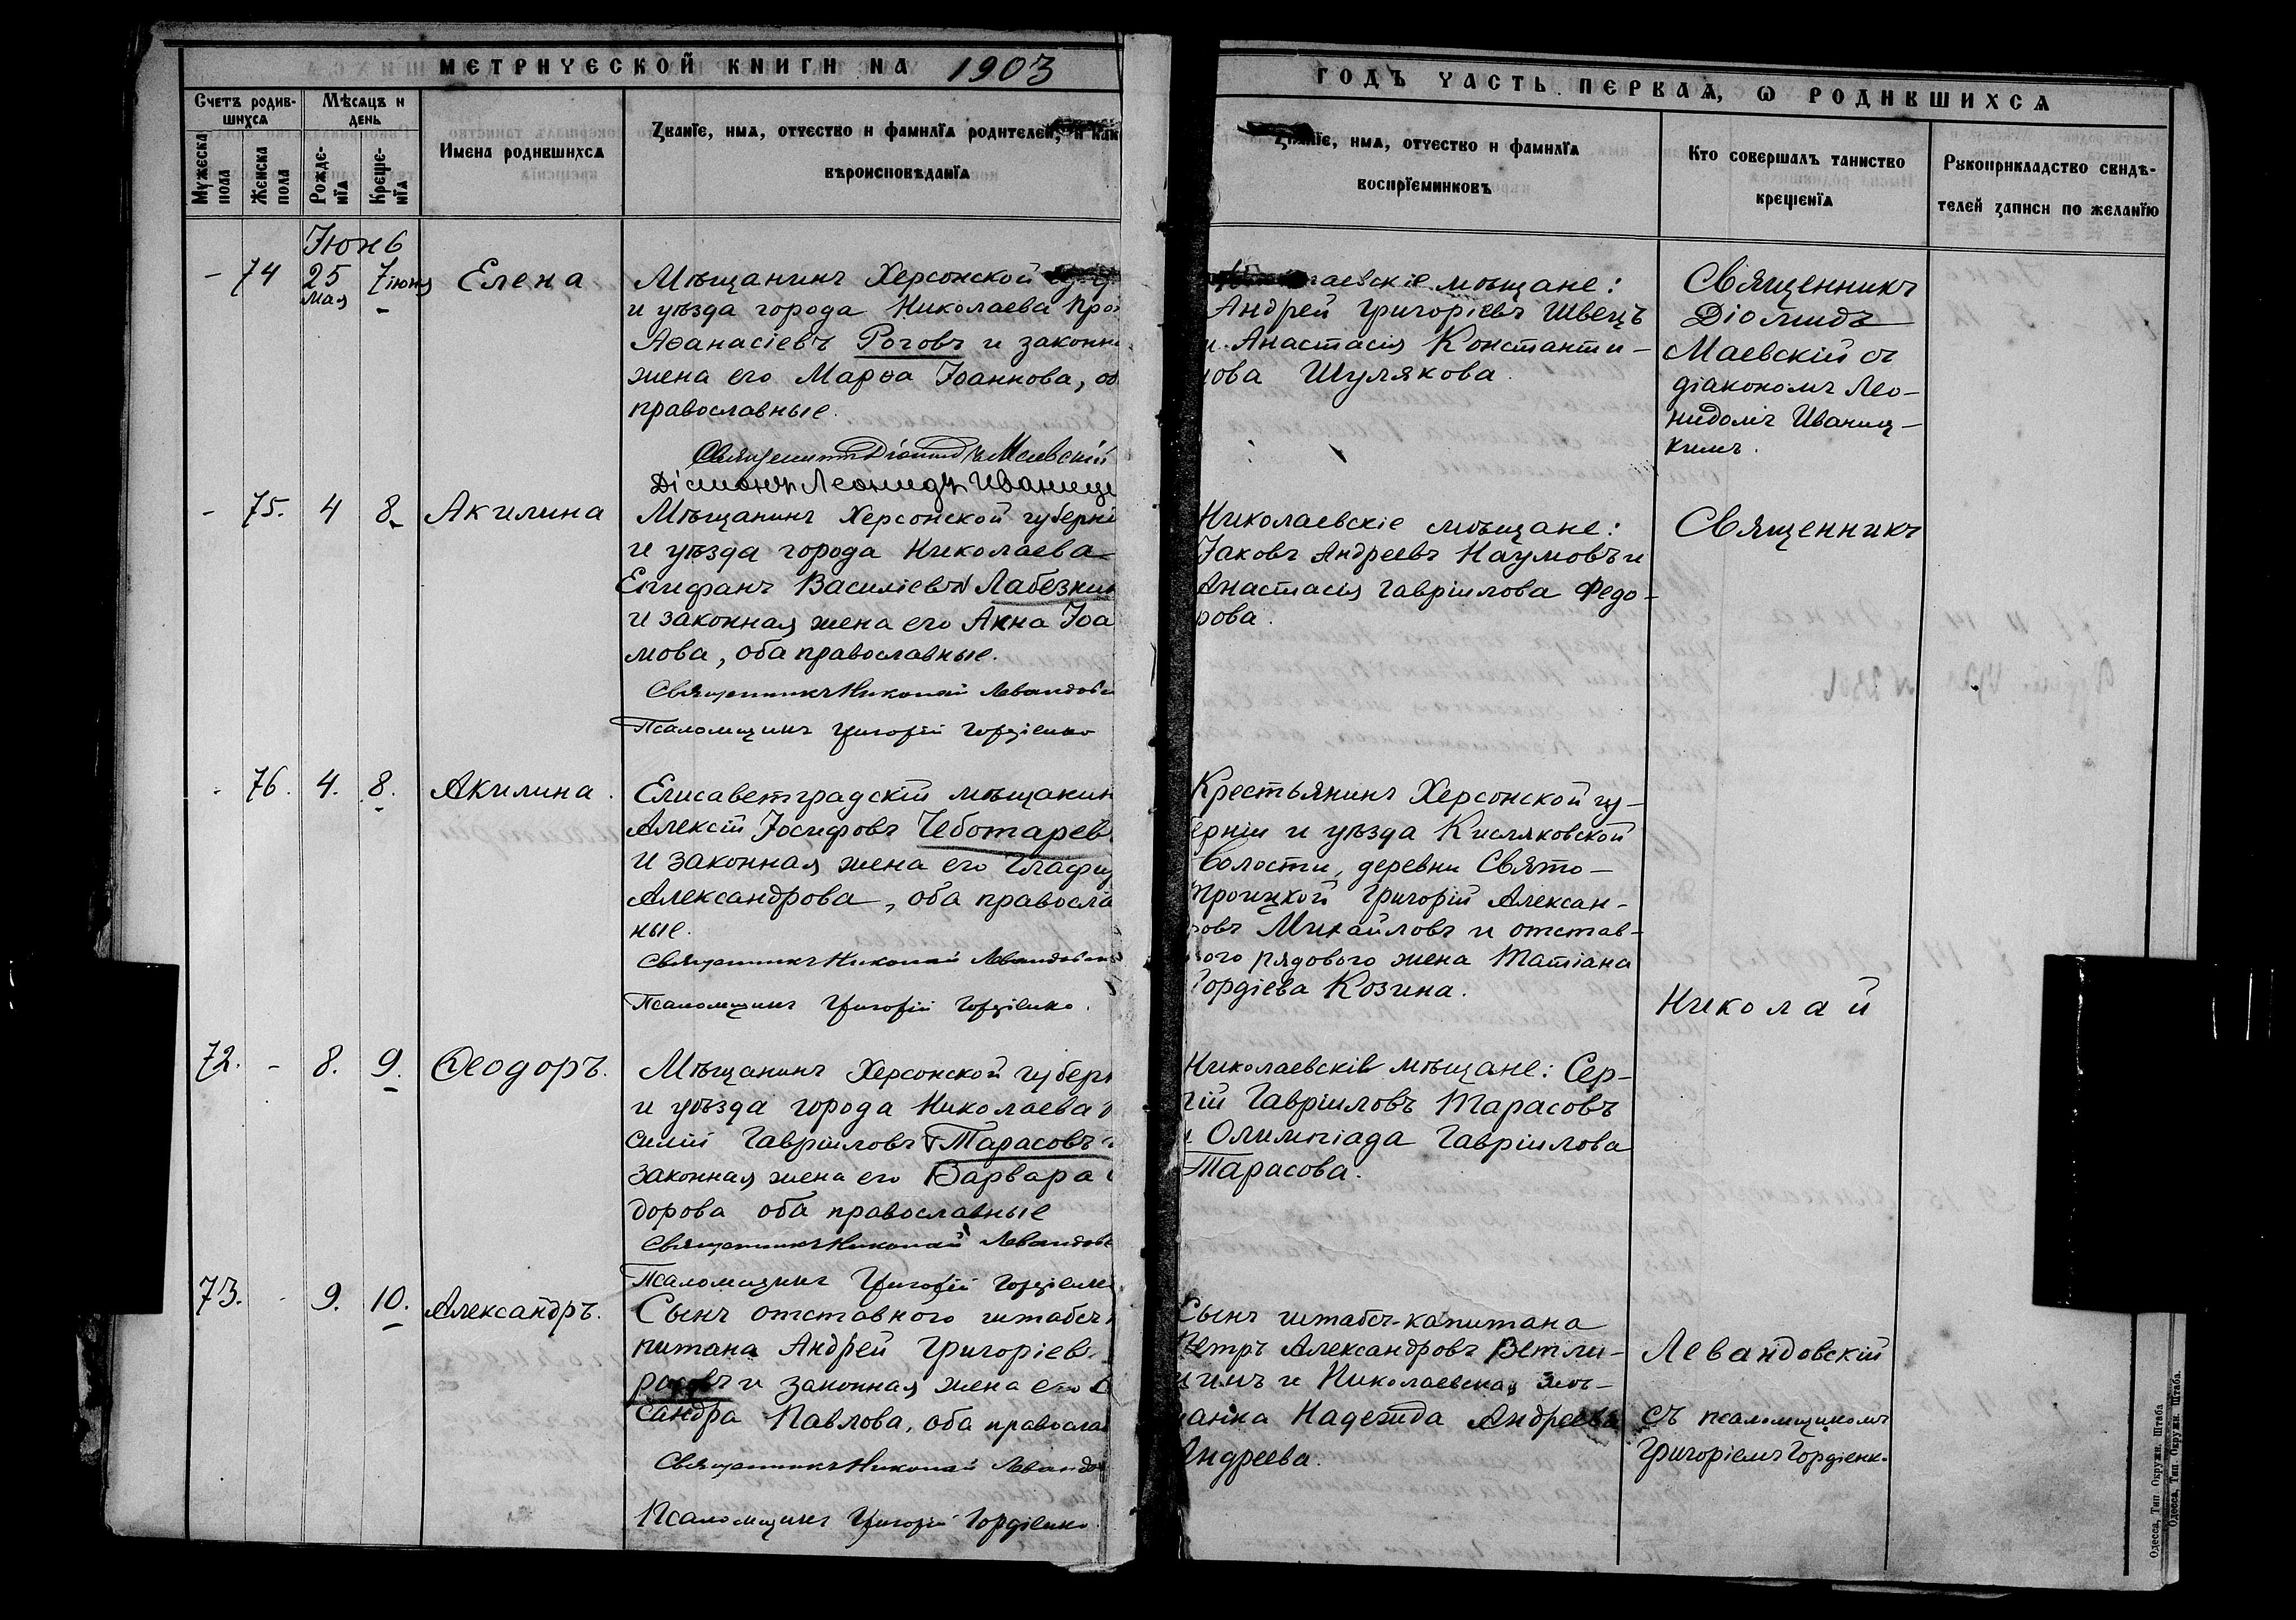 МЕТРИЧЕСКОЙ КНИГИ НА 1903
ГОДЪ ЧАСТЬ ПЕРВАЯ, Ѡ РОДИВШИХСЯ
Счетъ родив-
шихся
Мѣсяцъ и
день
Мужеска
пола
Женска
пола
Рожде-
нїя
Креще-
нїя
Имена родившихся
Званїе, имя, отчество и фамилїа родителей, и как
вѣроисповѣданїа
имя, отчество и фамилїа
воспрїемниковъ
Кто совершалъ таинство
крещенїя
Рукоприкладство свидѣ-
телей записи по желанїю
Іюнь
- 74 25 мая 7 іюня Елена
Мѣщанинъ Херсонской
и уѣзда города Николаева Про
Аѳанасіевъ Роговъ и законн
жена его Марѳа Іоаннова, об
православные.
Священникъ Діомидъ Маевскій
Діаконъ Леонидъ Иваниц
гаевскіе мѣщане:
Андрей Григоріевъ Швецъ
и Анастасія Константи-
нова Шулякова.
Священникъ
Діомидъ
Маевскій съ
діакономъ Лео-
нидомъ Иваниц-
кимъ.
- 75. 4 8 Акилина
Мѣщанинъ Херсонской губерні
и уѣзда города Николаева
Епифанъ Василіевъ Лабезни
и законная жена его Анна Іоа
мова, оба православные.
Священникъ Николай Левандов
Псаломщикъ Григорій Гордіенко
Николаевскіе мѣщане:
Іаковъ Андреевъ Наумовъ и
Анастасія Гавріилова Федо-
рова.
Священникъ
76. 4. 8. Акилина.
Елисаветградскій мѣщанин
Алексій Іосифовъ Чеботарев
и законная жена его Глафи
Александрова, оба правосла
ные.
Священникъ Николай Левандов
Псаломщикъ Григорій Гордіенко.
Крестьянинъ Херсонской гу-
ерніи и уѣзда Кисляковской
волости, деревни Свято-
Троицкой Григорій Алексан-
ровъ Михайловъ и отстав-
ного рядового жена Татіана
Гордіева Козина.
Николай
72. - 8. 9. Ѳеодоръ.
Мѣщанинъ Херсонской губерн
и уѣзда города Николаева
силій Гавріиловъ Тарасовъ и
законная жена его Варвара
дорова оба православные
Священникъ Николай Левандов
Псаломщикъ Григорій Гордіенко
Николаевскіе мѣщане: Сер-
гій Гавріиловъ Тарасовъ
и Олимпіада Гавріилова
Тарасова.
73. - 9. 10. Александръ.
Сынъ отставного штабсъ
питана Андрей Григоріев
и законная жена его
сандра Павлова, оба правосла
Священникъ Николай Левандо
Псаломщикъ Григорій Гордіенко
Сынъ штабсъ-капитана
Петръ Александровъ Ветли-
и Николаевская мѣ-
анка Надежда Андреева
Андреева.
Левандовскій
съ псаломщикомъ
Григоріемъ Гордіенк.
Одесса, Тип. Окружн. Штаба
Одесса, Тип. Окружн. Штаба.